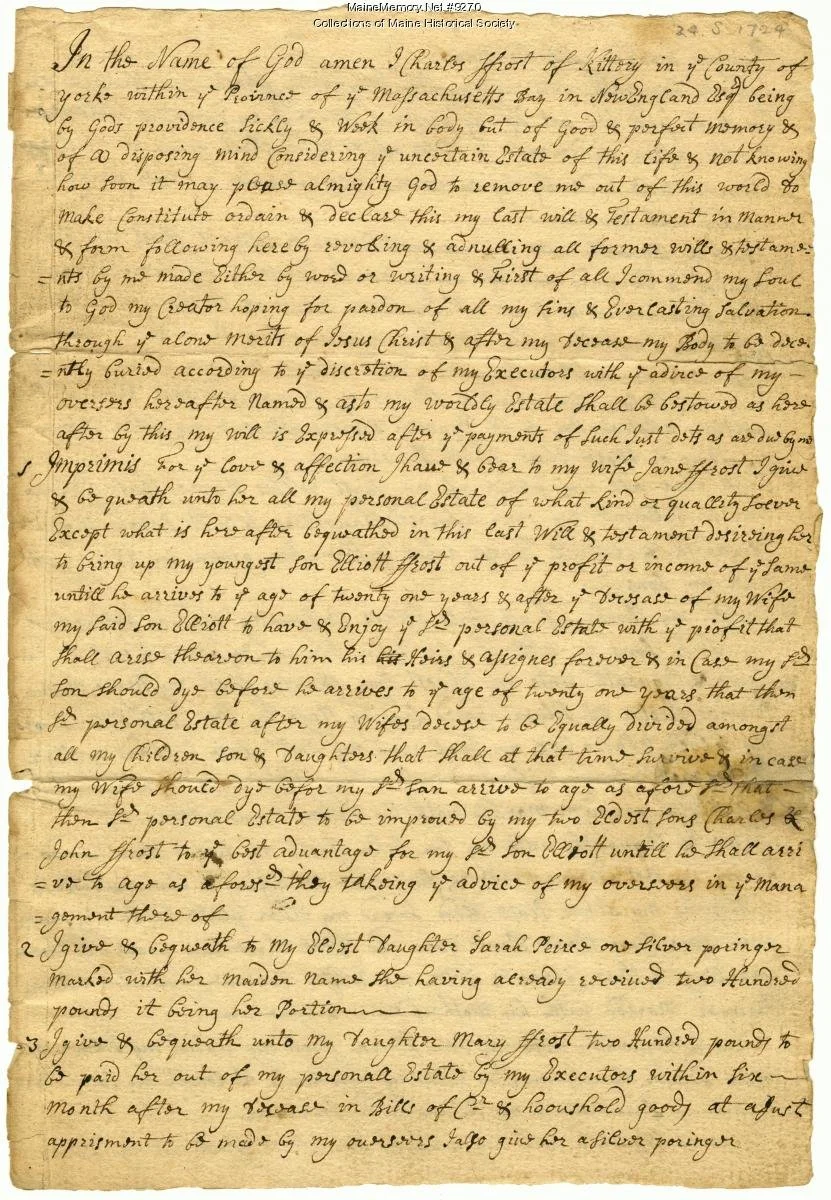 MaineMemory.Net #9270
Collections of Maine Historical Society
24. S. 1724
In the Name of God amen I Charles ffrost of Kittery in ye County of
yorke within ye Province of ye Massachusetts Bay in NewEngland Esqr being
by Gods providence Sickly & Week in body but of Good & perfect memory &
of a disposing mind Considering ye uncertain Estate of this life & not knowing
how soon it may please almighty God to remove me out of this world do
make Constitute ordain & declare this my last will & Testament in manner
& form following hereby revoking & adnulling all former wills & testame=
=nts by me made Either by word or writing & First of all I commend my Soul
to God my Creator hoping for pardon of all my Sins & Everlasting Salvation
through ye alone merits of Jesus Christ & after my Decease my Body to be dece
=ntly buried according to ye discretion of my Executors with ye advice of my
oversers hereafter Named & as to my worldly Estate Shall be bestowed as here
after by this my will is Expressed after ye payments of Such Just dets as are due by me
1 Imprimis For ye love & affection I have & bear to my wife Jane ffrost I give
& be queath unto her all my personal Estate of what kind or quallity Soever
Except what is here after bequeathed in this last Will & testament desireing her
to bring up my youngest Son Elliott ffrost out of ye profit or income of ye Same
untill he arrives to ye age of twenty one years & after ye Decesase of my Wife
my Said Son Elliott to have & Enjoy ye Sd personal Estate with ye piofit that
Shall arise theareon to him his his Heirs & assignes forever & in Case my Sd
Son should dye before he arrives to ye age of twenty one years that then
Sd personal Estate after my Wifes decese to be Equally divided amongst
all my Children Son & Daughters that Shall at that time Survive & in case
my Wife Should Dye befor my Sd San arrive to age as afore Sd that
then Sd personal Estate to be improved by my two Eldest Sons Charles &
John ffrost to ye best advantage for my Sd Son Elliott untill he Shall arri
=ve to age as aforesd they takeing ye advice of my overseers in ye Mana
=gement there of
2 I give & bequeath to my Eldest Daughter Sarah Peirce one Silver poringer
marked with her maiden name She having already received two Hundred
pounds it being her Portion
3 I give & bequeath unto my Daughter Mary ffrost two Hundred pounds to
be paid her out of my personall Estate by my Executors within Six
month after my Decease in Bills of Cr & hooushold goods at a Just
apprisment to be made by my overseers I also give her a silver poringer